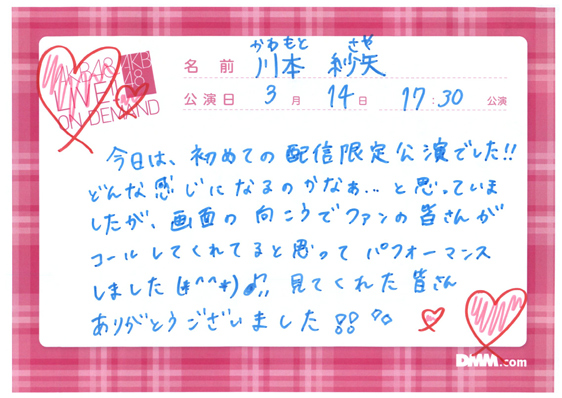 AKB48
LIVE!!
ON DEMAND
AKB
48
かわもと さや
名前 川本 紗矢
公演日 3月 14日 17:30 公演
今日は、初めての配信限定公演でした!!
どんな感じになるのかなぁ…と思っていま
したが、画面の向こうでファンの皆さんが
コールしてくれてると思ってパフォーマンス
しました(*^^*)♪!! 見てくれた皆さん
ありがとうございました!!
DMM.com